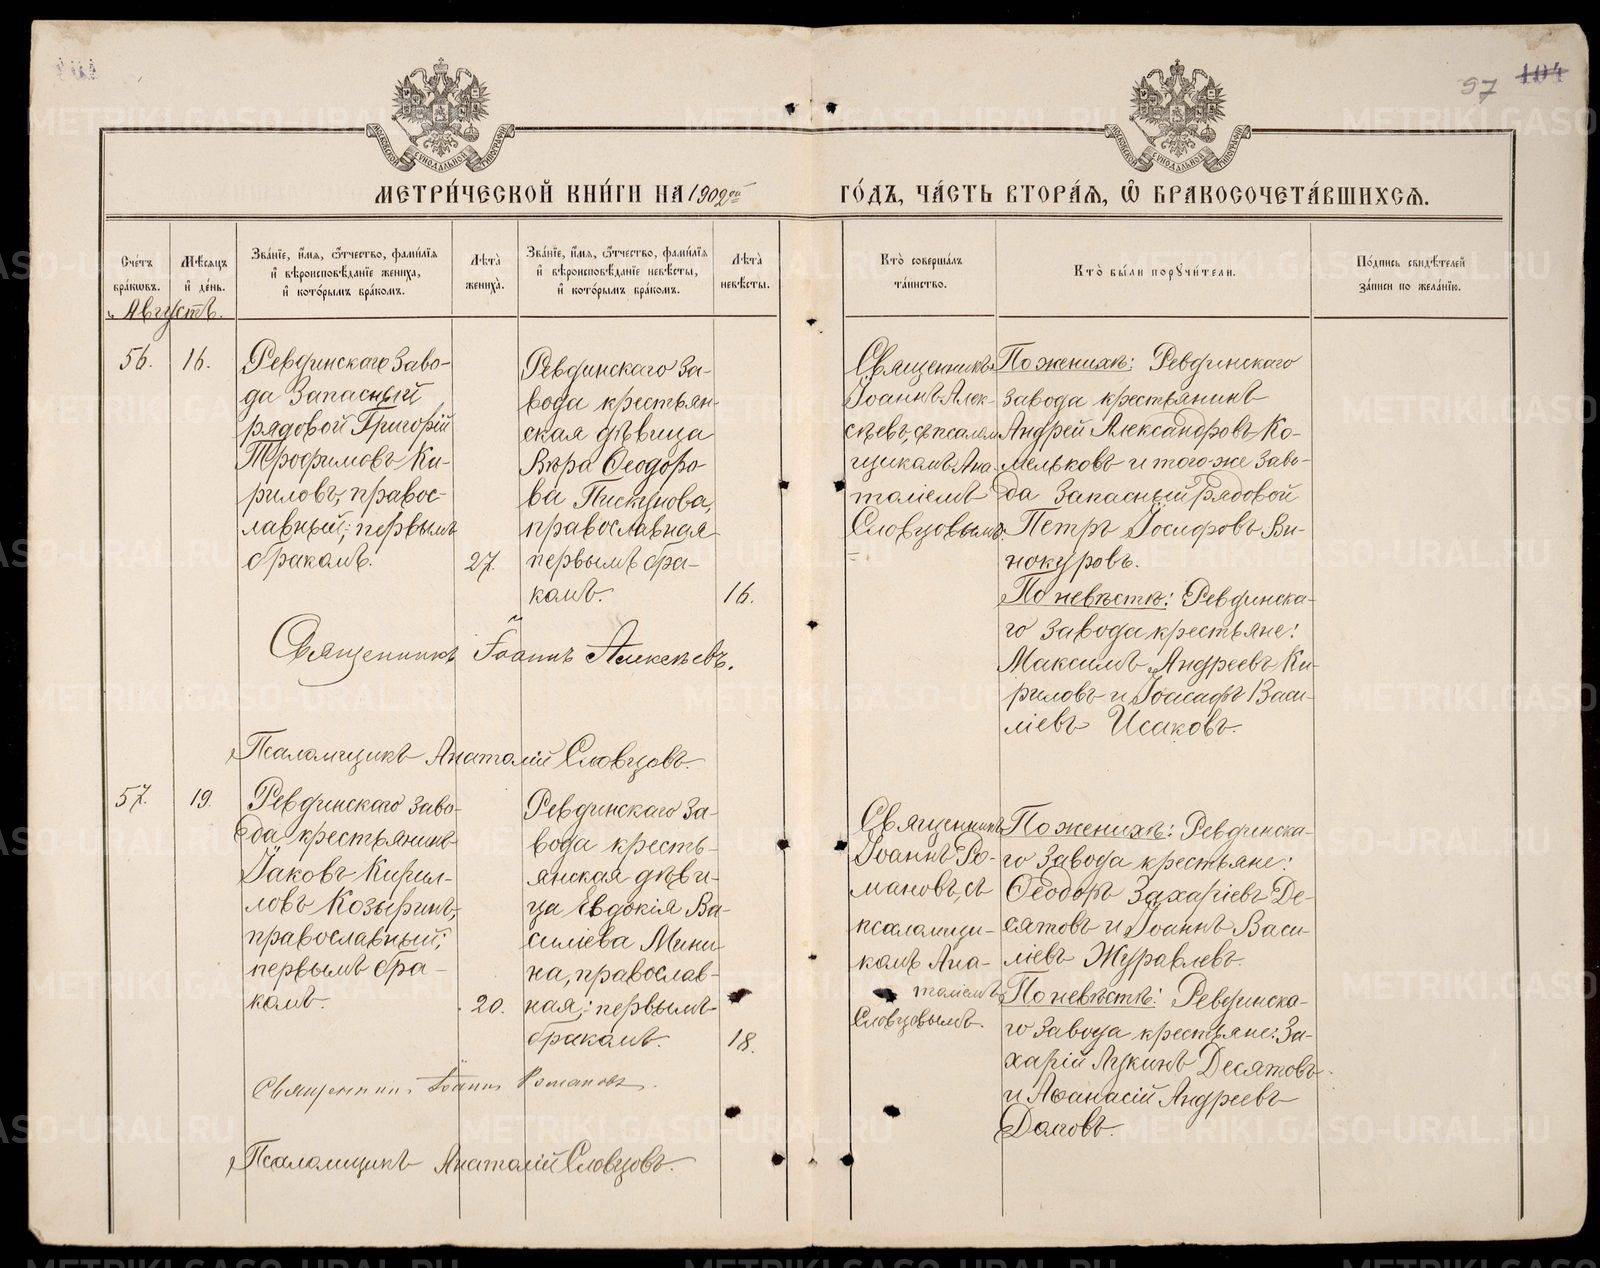 97 104
МЕТРИ́ЧЕСКОЙ КНИ́ГИ НА 1902ой ГО́ДЪ, ЧА́СТЬ ВТОРА́Ѧ, Ѽ БРАКОСОЧЕТА́ВШИХСѦ.
Сче́тъ бра́кωвъ.
Мѣ́сѧцъ и҆ де́нь.
Зва́нїе, и҆́мѧ, ѻ҆́тчество, фами́лїѧ
и҆ вѣроисповѣ́данїе жениха̀,
и҆ кото́рымъ бра́комъ.
Лѣ́та жениха̀.
Зва́нїе, и҆́мѧ, ѻ҆́тчество, фами́лїѧ
и҆ вѣроисповѣ́данїе невѣ́сты,
и҆ кото́рымъ бра́комъ.
Лѣ́та невѣ́сты.
Кто̀ соверша́лъ
та́инство.
Кто̀ бы́ли порꙋчи́тели.
По́дпись свидѣ́телей
за́писи по жела́нїю.
Августъ.
56.
16.
Ревдинскаго Заво-
да Запасный
рядовой Григорій
Трофимовъ Ки-
риловъ, правос-
лавный; первымъ
бракомъ.
27.
Ревдинскаго За-
вода крестьян-
ская дѣвица
Вѣра Ѳеодоро-
ва Пискунова,
православная
первымъ бра-
комъ.
16.
Священникъ
Іоаннъ Алек-
сѣевъ, съ псалом-
щикомъ Ана-
толіемъ
Словцовымъ.
По женихѣ: Ревдинскаго
завода крестьянинъ
Андрей Александровъ Ко-
мельковъ и того-же Заво-
да Запасный рядовой
Петръ Іосифовъ Ви-
нокуровъ.
По невѣстѣ: Ревдинска-
го Завода крестьяне:
Максимъ Андреевъ Ки-
риловъ и Іоасафъ Васи-
ліевъ Исаковъ.
Священникъ Іоаннъ Алексѣевъ.
Псаломщикъ Анатолій Словцовъ.
57.
19.
Ревдинскаго Заво-
да крестьянинъ
Іаковъ Кирил-
ловъ Козыринъ,
православный;
первымъ бра-
комъ.
20.
Ревдинскаго За-
вода кресть-
янская дѣви-
ца Евдокія Ва-
силіева Мини-
на, православ-
ная; первымъ
бракомъ.
18.
Священникъ
Іоаннъ Ро-
мановъ, съ
псаломщи-
комъ Ана-
толіемъ
Словцовымъ.
По женихѣ: Ревдинска-
го Завода крестьяне:
Ѳеодоръ Захаріевъ Де-
сятовъ и Іоаннъ Васи-
ліевъ Журавлевъ.
По невѣстѣ: Ревдинска-
го Завода крестьяне: За-
харій Лукинъ Десятовъ
и Аѳанасій Андреевъ
Долговъ.
Священникъ Іоаннъ Романовъ.
Псаломщикъ Анатолій Словцовъ.
METRIKI.GASO-URAL.RU